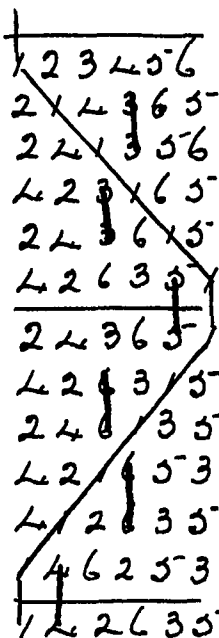 1 2 3 4 5 6
2 1 4 3 6 5
2 4 1 3 5 6
4 2 3 1 6 5
2 4 3 6 1 5
4 2 6 3 5 1
2 4 3 6 5 1
4 2 6 3 1 5
2 4 6 1 3 5
4 2 1 6 5 3
4 1 2 6 3 5
1 4 6 2 5 3
1 4 2 6 3 5